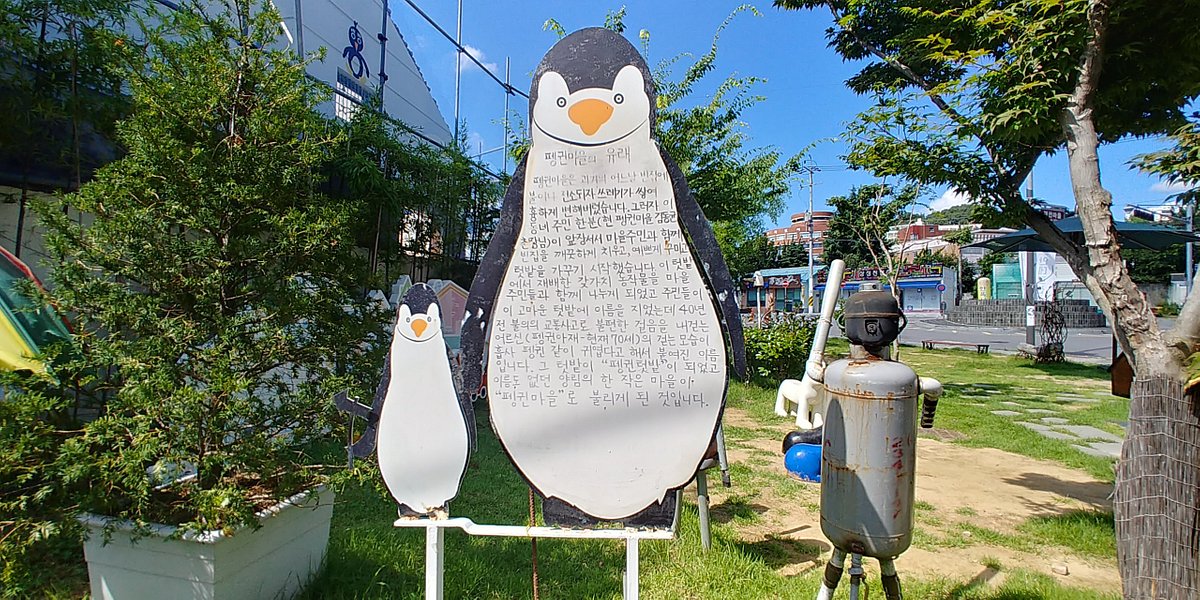 펭귄마을의 유래
펭귄마을은 과거의 어느날 빈집에
불이나 전소되자 쓰레기가 쌓여
흉하게 변해버렸습니다. 그러자 이
동네 주민 한분(현 펭귄마을 김동균
촌장님)이 앞장서서 마을주민과 함께
빈집을 깨끗하게 치우고, 예쁘게 꾸미고
텃밭을 가꾸기 시작했습니다. 이 텃밭
에서 재배한 갖가지 농작물을 마을
주민들과 함께 나누게 되었고 주민들이
이 고마운 텃밭에 이름을 지었는데 40년
전 불의의 교통사고로 불편한 걸음을 내걷는
어르신(펭귄아재-현재 70세)의 걷는 모습이
흡사 펭귄 같이 귀엽다고 해서 붙여진 이름
입니다. 그 텃밭이 "펭귄텃밭"이 되었고
이름도 없던 양림의 한 작은 마을이
"펭귄마을"로 불리게 된 것입니다.